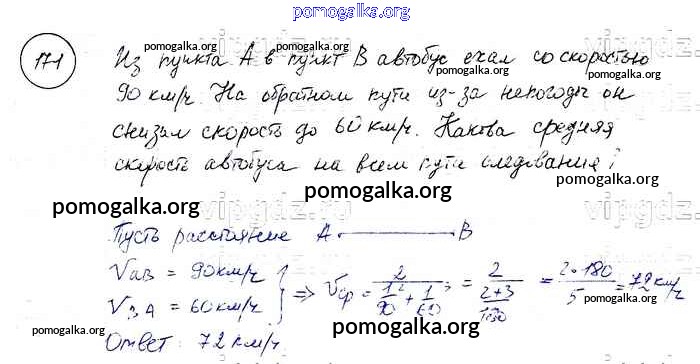 pomogalka.org
171
Из пункта А в пункт В автобус ехал со скоростью
90 км/ч. На обратном пути из-за непогоды он
снизил скорость до 60 км/ч. Какова средняя
скорость автобуса на всем пути следования?
pomogalka.org
pomogalka.org
pomogalka.org
pomogalka.org
pomogalka.org
pomogalka.org
pomogalka.org
vipgdz.ru
Пусть расстояние А В
VАВ = 90 км/ч
VВА = 60 км/ч } => Vср = 2/(1/90 + 1/60) = 2/((2+3)/180) = 2·180/5 = 72 км/ч
Ответ: 72 км/ч.
pomogalka.org
pomogalka.org
pomogalka.org